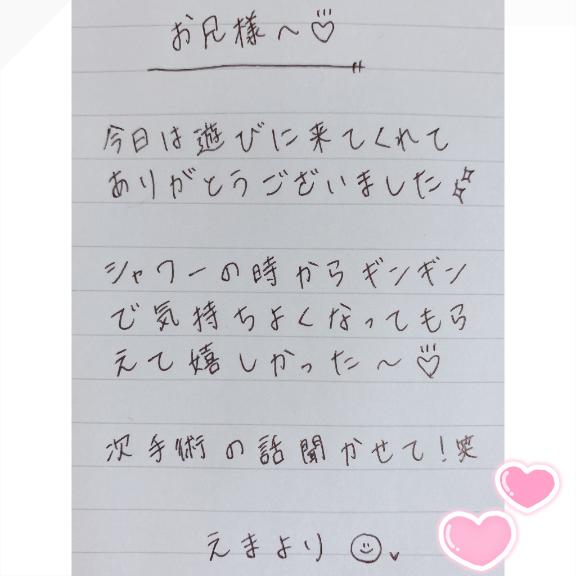 お兄様〜♡
今日は遊びに来てくれて
ありがとうございました
シャワーの時からギンギン
で気持ちよくなってもら
えて嬉しかった〜♡
次手術の話聞かせて！笑
えまより